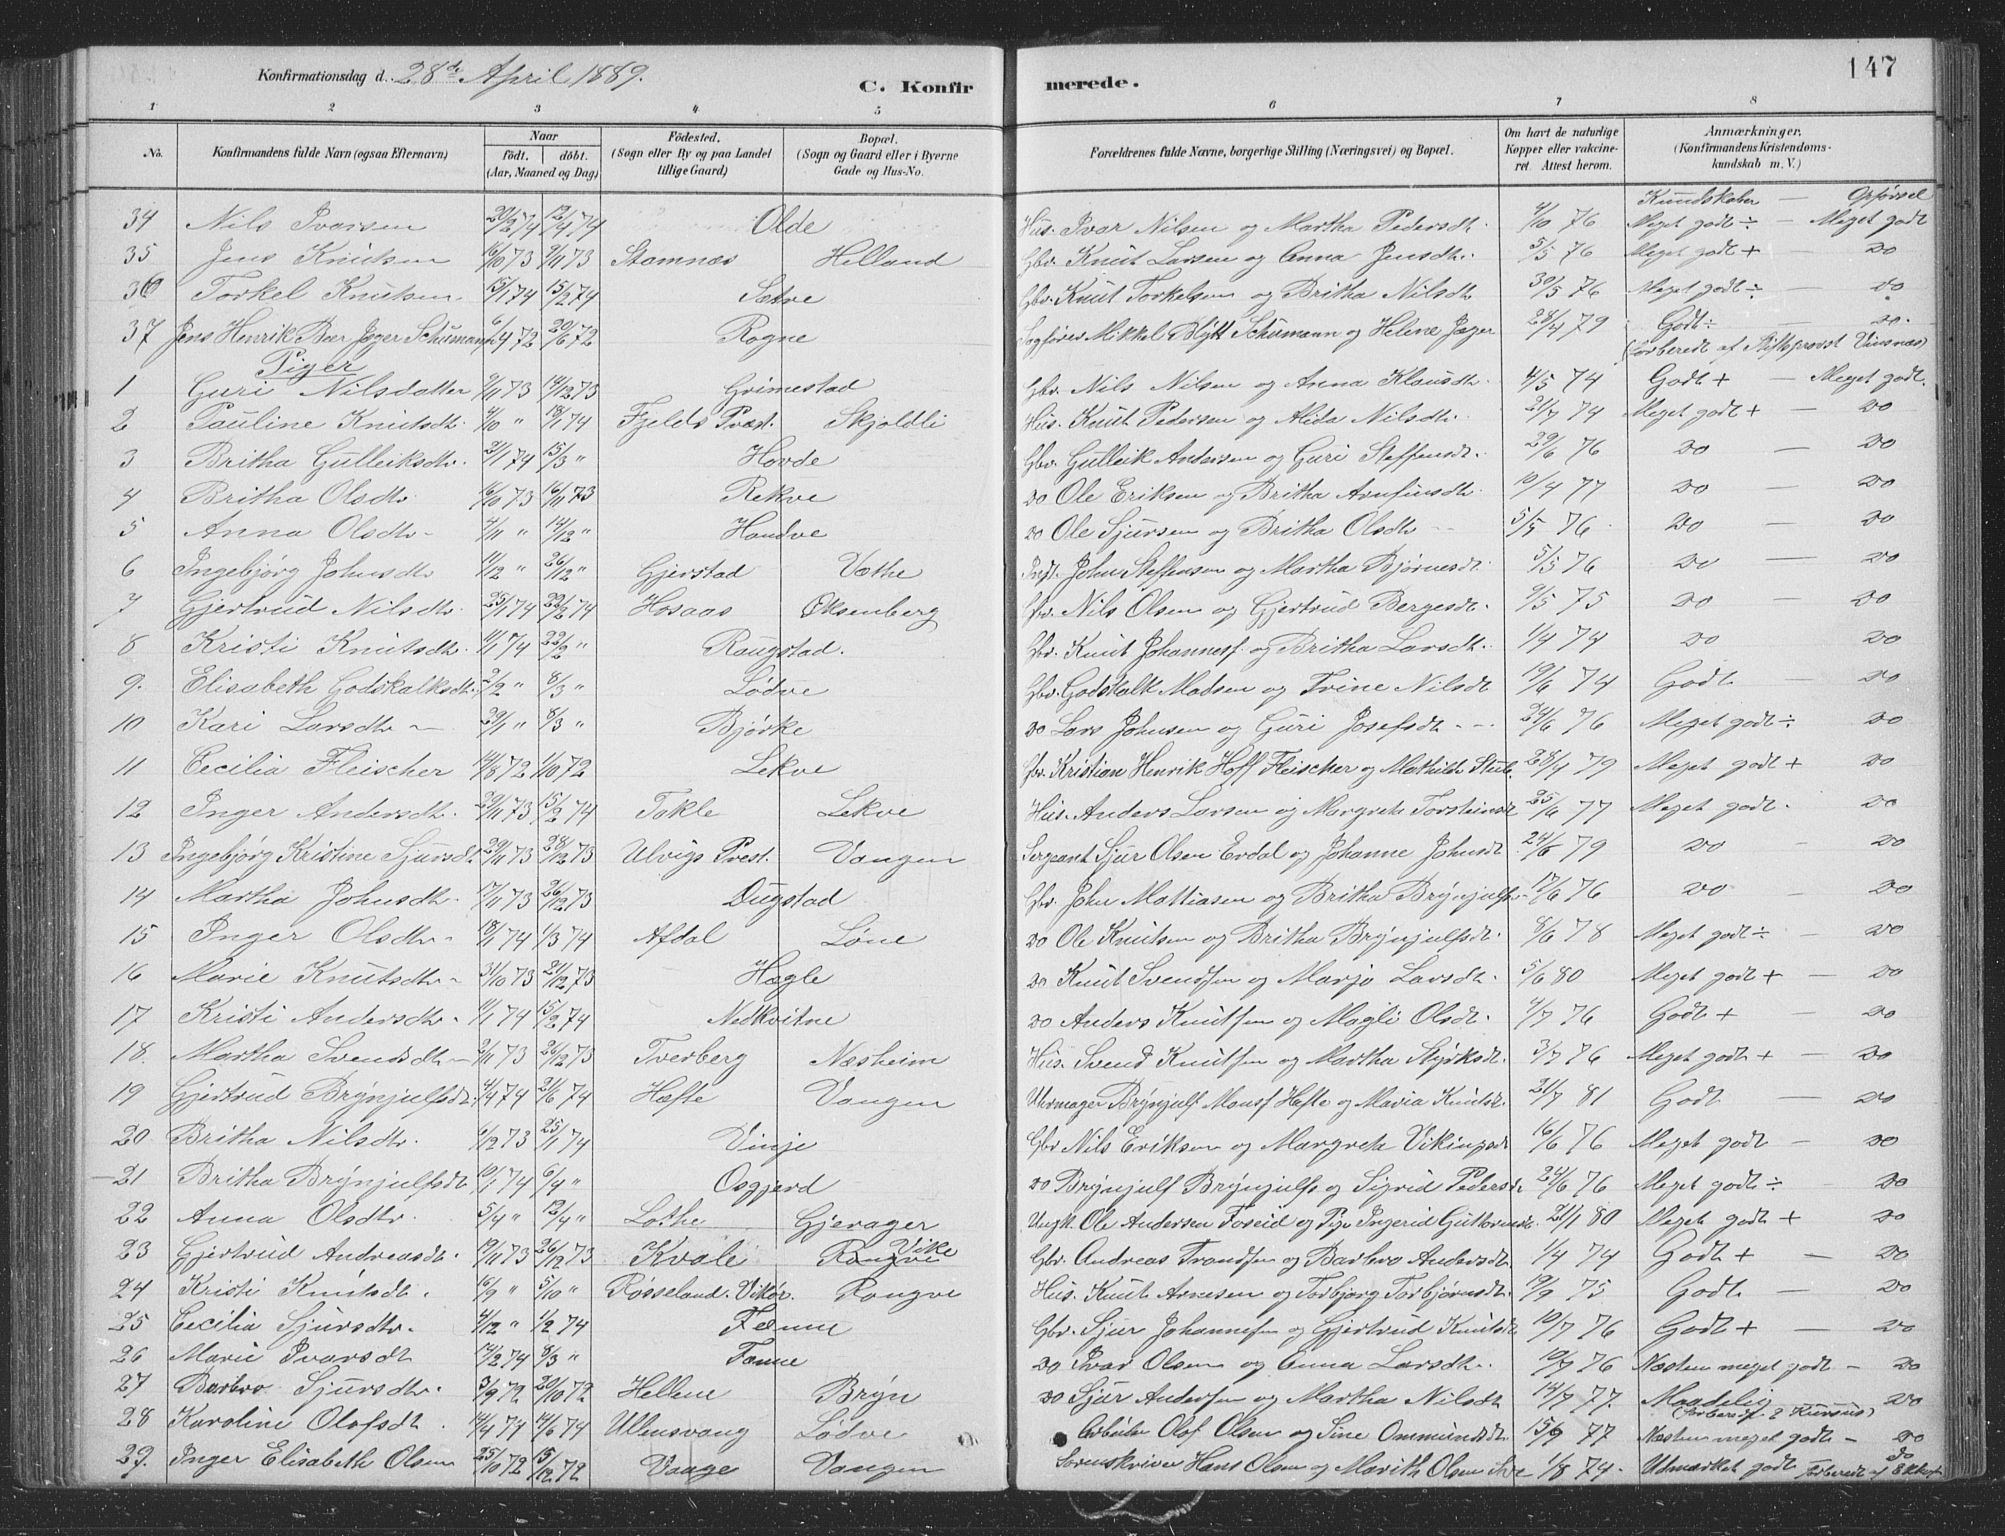 Konfirmationsdag d. 28de April 1889.
C. Konfirmerede.
147
1 2 3 4 5 6 7 8
No. Konfirmandens fulde Navn (ogsaa Efternavn) Naar födt. döbt. (Aar, Maaned og Dag) Födested. (Sogn eller By og paa Landet tillige Gaard) Bopæl. (Sogn og Gaard eller i Byerne Gade og Hus-No. Forældrenes fulde Navne, borgerlige Stilling (Næringsvei) og Bopæl. Om havt de naturlige Kopper eller vakcineret. Attest herom. Anmærkninger. (Konfirmandens Kristendomskundskab m. V.)
Kundskaber — Opførsel
34 Nils Ivarsen 20/2 74 12/4 74 Olde Hus. Ivar Nilsen og Martha Pedersdt. 4/10 76 Meget godt ÷ — Meget godt
35 Jens Knutsen 16/10 73 9/11 73 Stamnæs Helland Gbr. Knut Larsen og Anna Jensdt. 5/5 76 Meget godt + — do
36 Torkel Knutsen 15/1 74 15/2 74 Sætve Gbr. Knut Torkelsen og Britha Nilsdt 30/5 76 Meget godt ÷ — do
37 Jens Henrik Bar Jæger Schumann 6/4 72 20/6 72 Rogne Sagfører Mikkel Blytt Schumann og Helene Jæger 28/4 79 Godt ÷ — do.
(forberedt af Stiftsprovst Vinsnæs)
Piger
1 Guri Nilsdatter 9/11 73 14/12 73 Grimestad Gbr. Nils Nilsen og Anna Klausdt. 4/5 74 Godt + — Meget godt.
2 Pauline Knutsdt. 4/10 " 18/1 74 Fjelds Præst. Skjoldli Hus. Knut Pedersen og Alida Nilsdt. 21/7 74 Meget godt + — do
3 Britha Gulleiksdt. 21/1 74 15/3 " Hovde Gbr. Gulleik Andersen og Guri Steffensdt. 29/6 76 do — do
4 Britha Olsdt. 16/10 73 16/11 73 Rekve do Ole Eriksen og Britha Arnfinsdt. 10/4 77 do — do
5 Anna Olsdt. 4/11 " 14/12 " Handve do Ole Sjursen og Britha Olsdt. 5/5 76 do — do
6 Ingebjørg Johnsdt. 11/12 " 26/12 " Gjerstad Væthe Inds. John Steffensen og Martha Bjørnesdt 5/5 76 do — do
7 Gjertrud Nilsdt. 25/1 74 22/2 74 Hosaas Oksenberg Gbr. Nils Olsen og Gjertrud Bergesdt. 9/5 75 do — do
8 Kristi Knutsdt. 11/1 74 22/2 " Raugstad. Gbr. Knut Johannesf. og Britha Larsdt. 1/4 74 do — do
9. Elisabeth Godskalksdt. 2/2 " 8/3 " Lødve Gbr. Godskalk Madsen og Trine Nilsdt 19/6 74 Godt — do
10 Kari Larsdt. 29/1 " 8/3 " Bjørke do Lars Johnsen og Guri Josefsdt. 24/6 76 Meget godt ÷ do
11 Cecilia Fleischer 14/8 72 1/10 72 Lekve Gbr. Kristian Henrik Hoff Fleischer og Mathilde Stub. 28/4 79 Meget godt + do
12 Inger Andersdt. 29/11 73 15/2 74 Tokle Lekve Hus. Anders Larsen og Margreta Torsteinsdt 25/6 77 Meget godt. do
13 Ingebjørg Kristine Sjursdt 29/11 73 28/12 73 Ulvigs Prest. Vangen Sergeant Sjur Olsen Evdal og Johanne Johnsdt 24/6 79 do — do
14 Martha Johnsdt. 17/11 73 26/12 73 Dugstad Gbr. John Mattiasen og Britha Brynjulfs 17/6 76 do — do
15 Inger Olsdt. 18/1 74 1/3 74 Afdal Løne do Ole Knutsen og Britha Brynjulfsdt. 8/6 78 Meget godt ÷ — do
16 Marie Knutsdt. 31/10 73 21/12 73 Hægle do Knut Svendsen og Marjo Larsdt. 5/6 80 Meget godt + — do
17 Kristi Andersdt. 11/1 74 15/2 74 Nedkvitne do Anders Knutsen og Magli Olsdt. 4/7 76 Godt + — do
18. Martha Svendsdt 2/11 73 26/12 73 Tverberg Næsheim Hus. Svend Knutsen og Martha Styrksdt. 3/7 76 Meget godt + — do
19 Gjertrud Brynjulfsdt. 4/4 74 21/6 74 Hæfte Vangen Uhrmager Brynjulf Monsf Hefte og Maria Knutsdt. 21/7 81 Godt — do
20 Britha Nilsdt. 6/12 73 25/1 74 Vinje Gbr Nils Eriksen og Margreta Vikingsdt 16/6 76 Meget godt — do
21 Britha Brynjulfsdt. 10/1 74 6/4 " Osgjerd do Brynjulf Brynjulfs. og Sigrid Pedersdt 24/6 76 Meget godt ÷ do
22 Anna Olsdt. 5/4 " 12/4 " Lothe Gjerager Ungk. Ole Andersen Foseid og Pige Ingerid Guttormsdt. 21/1 80 Meget godt + do
23 Gjertrud Andreasdt. 19/11 73 26/12 73 Kvale Rongve Vike Gbr. Andreas Trondsen og Barbro Andersdt. 1/4 74 Godt + — do
24 Kristi Knutsdt. 16/9 " 5/10 " Røsseland. Vikør. Rongve Hus. Knut Arnesen og Torbjørg Torbjørnsdt. 19/9 75 Godt — do
25 Cecilia Sjursdt. 4/12 " 1/2 74 Fenne Gbr. Sjur Johannesen og Gjertrud Knutsdt 10/7 76 Godt + — do
26 Marie Ivarsdt 14/2 74 8/3 " Fenne do Ivar Olsen og Anna Larsdt. 10/7 76 Næsten meget godt — do
27 Barbro Sjursdt. 3/9 72 20/10 72 Hellene Bryn do Sjur Andersen og Martha Nilsdt 14/7 77. Maadelig do
(forberedt 2 Kursus)
28 Karoline Olofsdt. 14/4 74 14/6 74 Ullensvang Lødve Arbeider Olof Olsen og Sine Ommundsdt. 15/9 77 Næsten meget godt — do
29. Inger Elisabeth Olsen 25/10 72 15/12 72 Vaage Vangen Sorenskriver Hans Olsen og Marith Olsen 1/8 74. Udmærket godt do